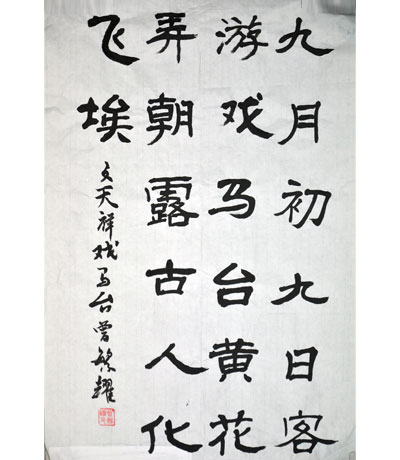 九月初九日客
游戏马台黄花
弄朝露古人化
飞埃
文天祥戏马台曾繁耀